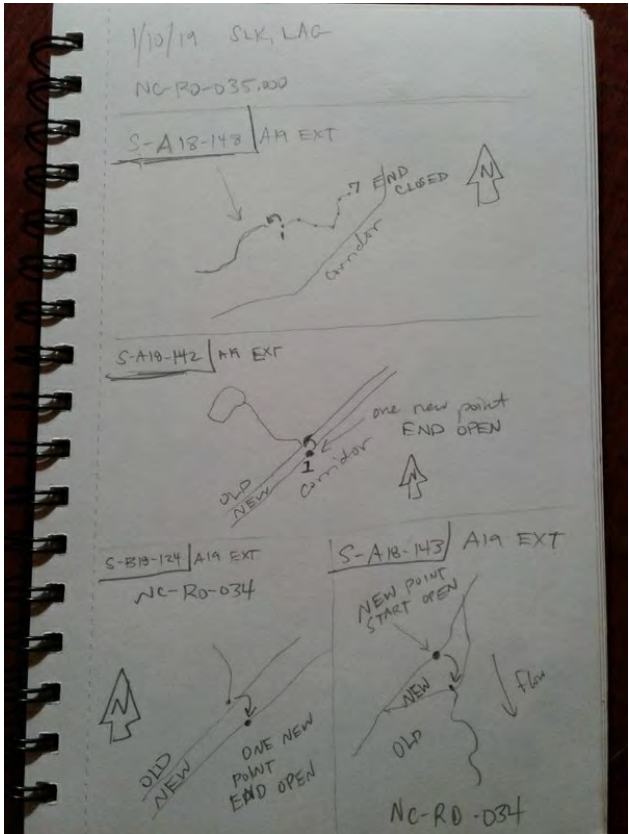 1/10/19 SLK, LAG
NC-RD-035.000
S-A18-148 A19 EXT
N
7 END
CLOSED
1
corridor
S-A18-142 A19 EXT
one new point
END OPEN
1
corridor
OLD
NEW
N
S-B18-124 A19 EXT
NC-RD-034
N
OLD
NEW
ONE NEW
POINT
END OPEN
S-A18-143 A19 EXT
NEW POINT
START OPEN
NEW
OLD
Flow
NC-RD-034